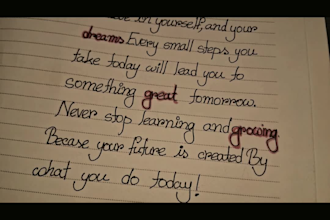 in yourself, and your
dreams Every small steps you
take today will lead you to
something great tomorrow.
Never stop learning and growing.
Becase your future is created By
what you do today!